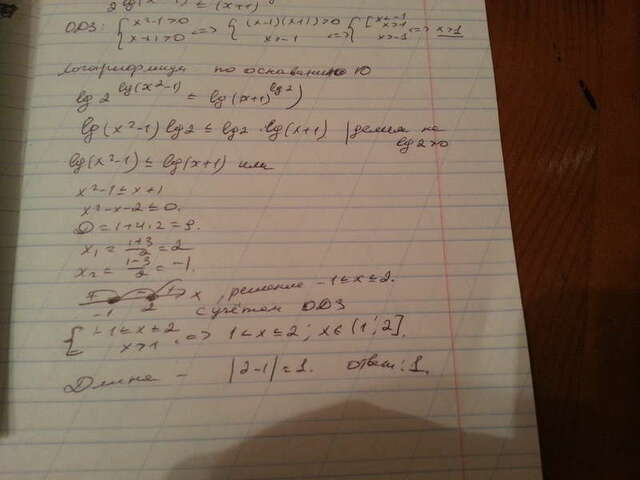 2^lg(x²-1) ≤ (x+1)
ОДЗ: { x²-1>0 x+1>0 <=> { (x-1)(x+1)>0 x>-1 <=> { [ x<-1 x>1 x>-1 <=> x>1
Логарифмируя по основанию 10
lg 2^lg(x²-1) ≤ lg(x+1)^lg2)
lg(x²-1) lg2 ≤ lg2 · lg(x+1) | делим на lg2>0
lg(x²-1) ≤ lg(x+1) или
x²-1 ≤ x+1
x²-x-2 ≤ 0,
D = 1+4·2 = 9.
x₁ = 1+3/2 = 2
x₂ = 1-3/2 = -1.
-1 2 x, решение -1≤x≤2.
с учётом ОДЗ
{ -1≤x≤2 x>1 <=> 1<x≤2; x∈(1;2].
Длина - |2-1|=1. Ответ: 1.